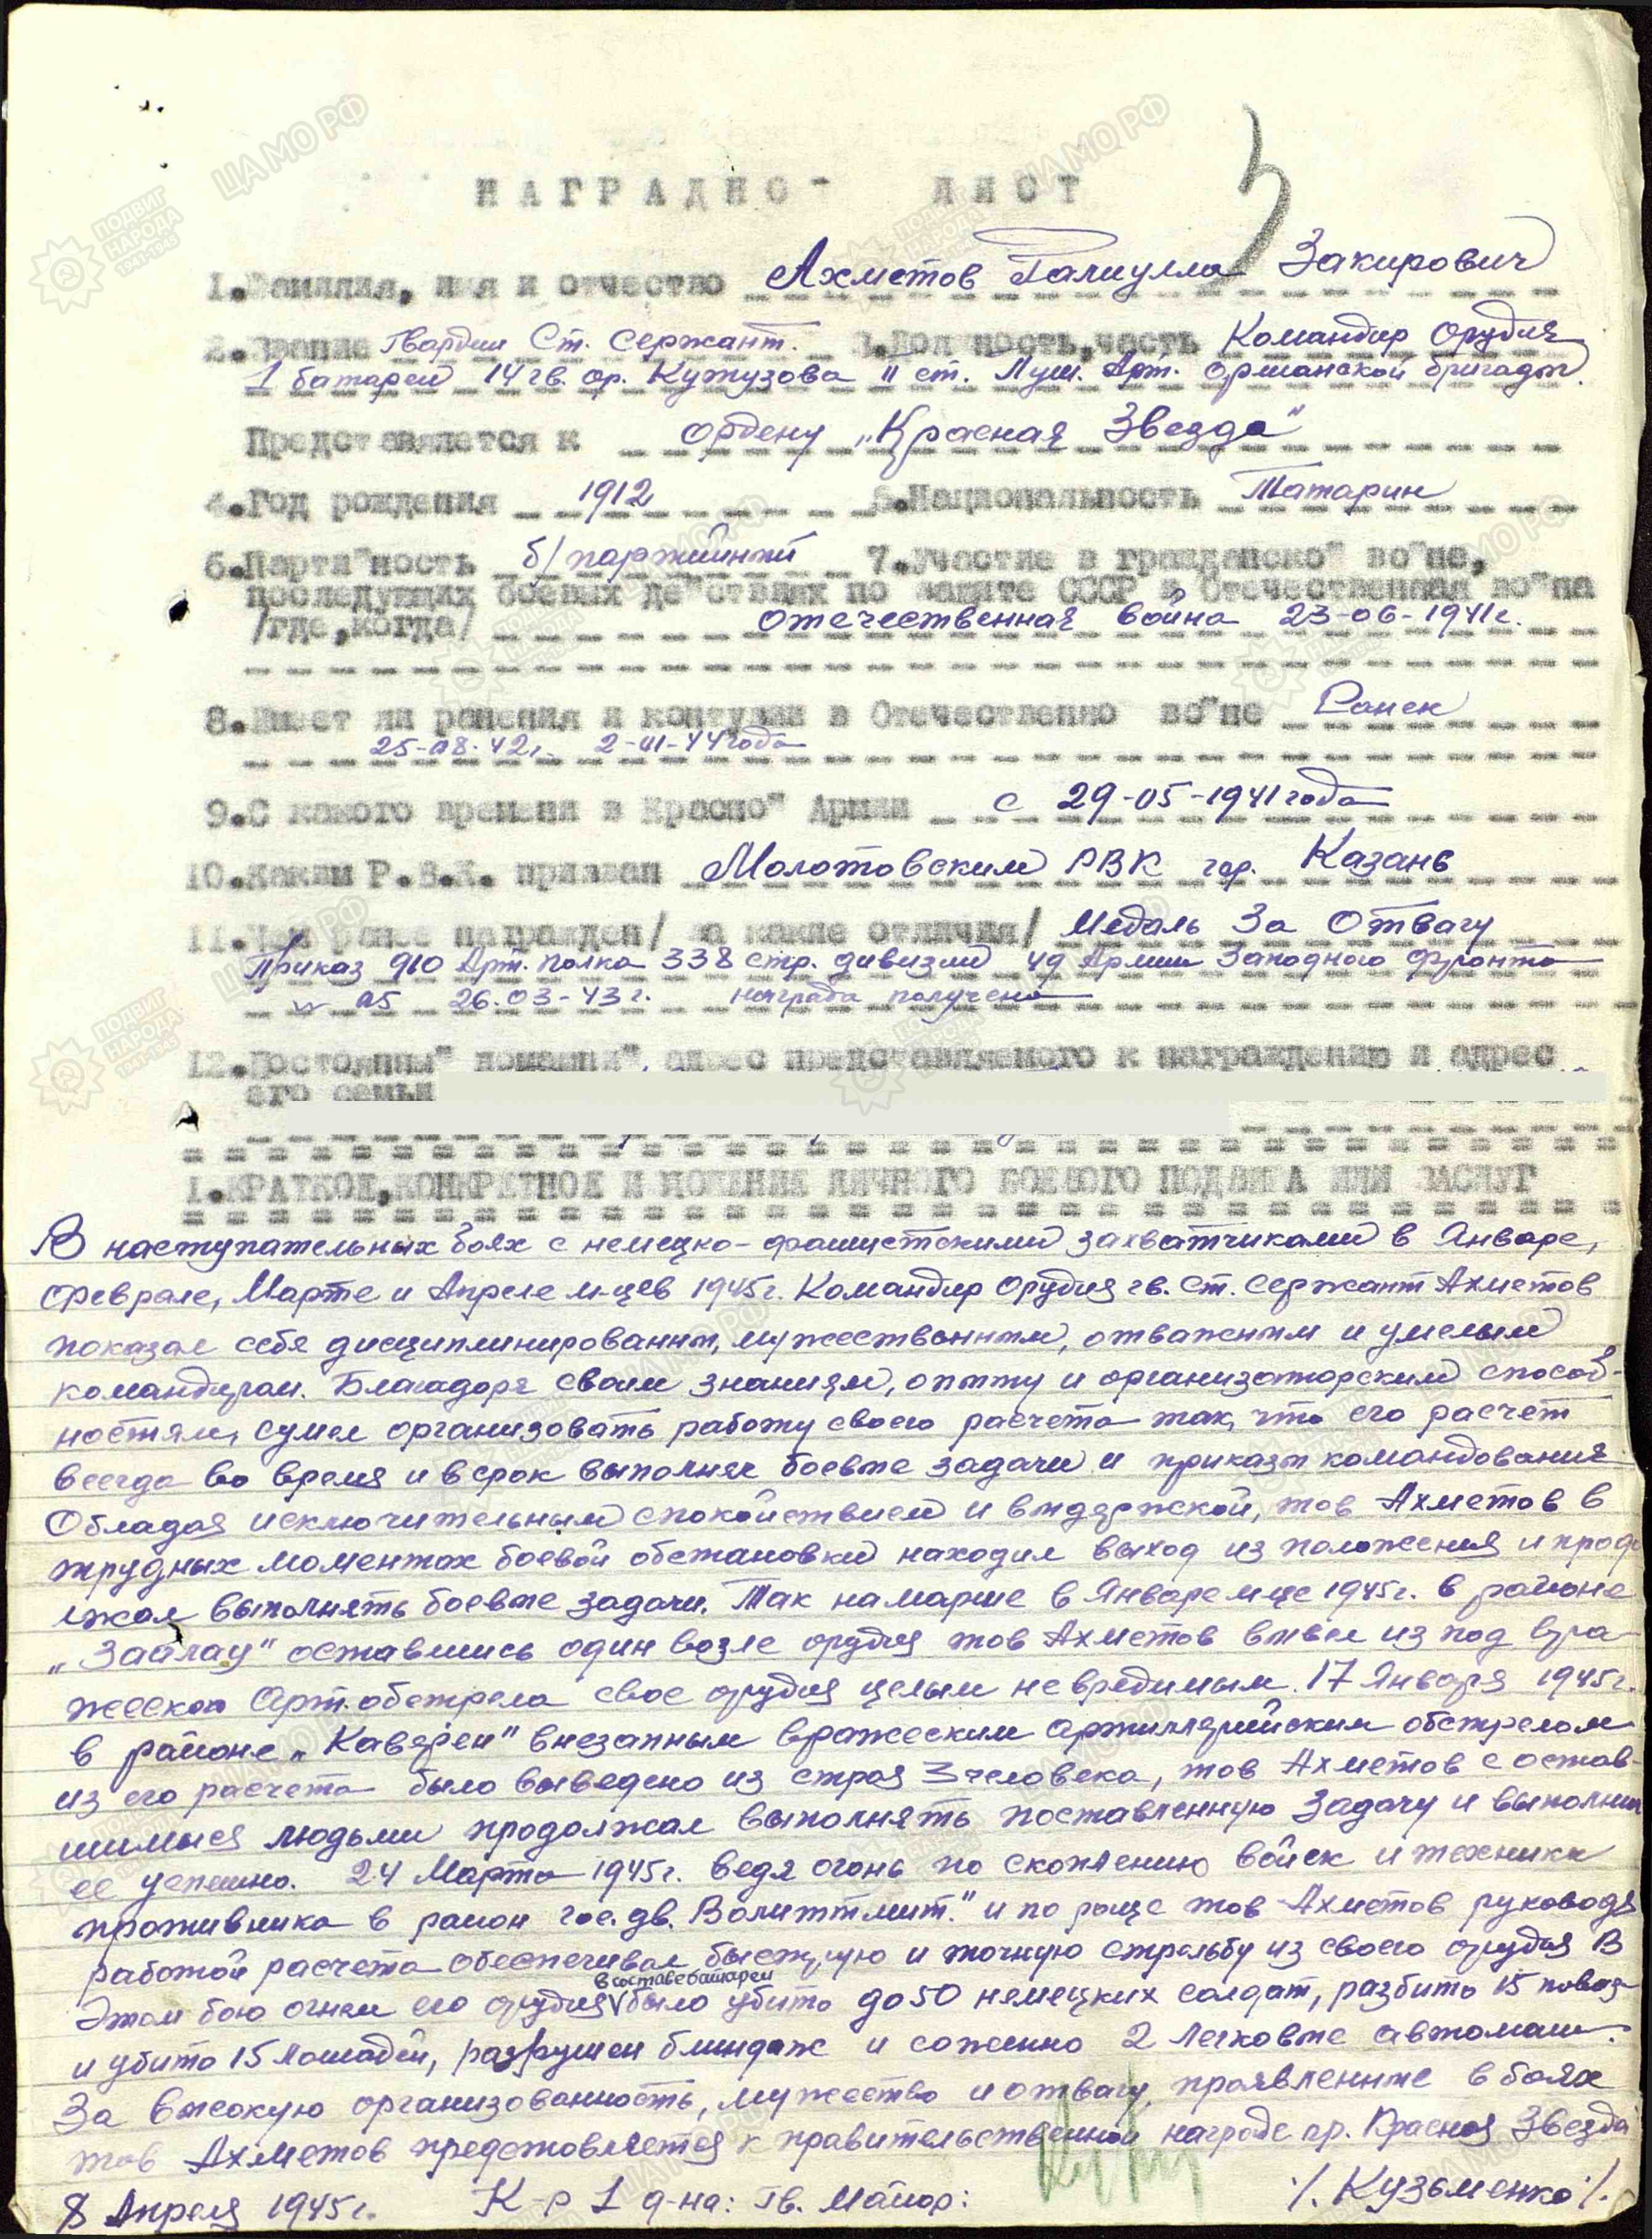 5
НАГРАДНО" ЛИСТ
1.Фамилия, имя и отчество Ахметов Галиулла Закирович
2.Звание Гвардии Ст. Сержант. 3.Должность,часть Командир Орудия
1 батареи 14 гв. ор. Кутузова II ст. Пуш. Арт. бригады
Представляется к Ордену „Красная Звезда"
4.Год рождения 1912 5.Национальность Татарин
6.Парти"ность б/партийный 7.Участие в гражданско" во"не,
последующих боевых де"ствиях по защите СССР и Отечественная во"на
/где,когда/ Отечественная война 23-06-1941г.
8.Имеет ли ранения и контузии в Отечественно во"не Ранен
25-08-42г. 2-01-44 года
9.С какого времени в Красно" Армии с 29-05-1941 года
10.Каким Р.В.К. призван Молотовским РВК гор. Казань
11.Чем ранее награжден/ за какие отличия/ Медаль За Отвагу
Приказ 910 Арт. полка 338 стр. дивизии 49 Армии Западного Фронта
№ 05 26.03-43г. награда получена
12.Постоянны" домашни" адрес представляемого к награждению и адрес
его семьи
1.КРАТКОЕ,КОНКРЕТНОЕ ИЗЛОЖЕНИЕ ЛИЧНОГО БОЕВОГО ПОДВИГА ИЛИ ЗАСЛУГ
В наступательных боях с немецко-фашистскими захватчиками в Январе,
Феврале, Марте и Апреле м-цев 1945г. Командир Орудия гв. Ст. Сержант Ахметов
показал себя дисциплинированным, мужественным, отважным и умелым
командиром. Благодоря своим знаниям, опыту и организаторским способ-
ностям, сумел организовать работу своего расчета так, что его расчет
всегда во время и в срок выполнял боевые задачи и приказы командования
Обладая исключительным спокойствием и выдержкой, тов Ахметов в
трудных моментах боевой обстановки находил выход из положения и продо
лжал выполнять боевые задачи. Так на марше в Январе м-це 1945г. в районе
„Зайлау" оставшись один возле орудия тов Ахметов вывел из под вра-
жеского Арт.обстрела свое орудия целым невредимым. 17 Января 1945г.
в районе „Каверен" внезапным вражеским артиллерийским обстрелом
из его расчета было выведено из строя 3 человека, тов Ахметов с остав-
шимися людьми продолжал выполнять поставленную задачу и выполнил
ее успешно. 24 Марта 1945г. ведя огонь по скоплению войск и техники
противника в район гос.дв. Волиттмит." и по роще тов Ахметов руководя
работой расчета обеспечивал быструю и точную стрельбу из своего орудия В
в составе батареи
Этом бою огнем его орудия было убито до 50 немецких солдат, разбито 15 повоз-
и убито 15 лошадей, разрушен блиндаж и сожжено 2 легковые автомаш.
За высокую организованность, мужество и отвагу, проявленные в боях
тов Ахметов представляется к правительственной награде ор. Красная Звезда
8 Апреля 1945г. К-р 1 д-на: Гв. Майор: /. Кузьменко /.
ЦАМО РФ
ПОДВИГ НАРОДА 1941-1945